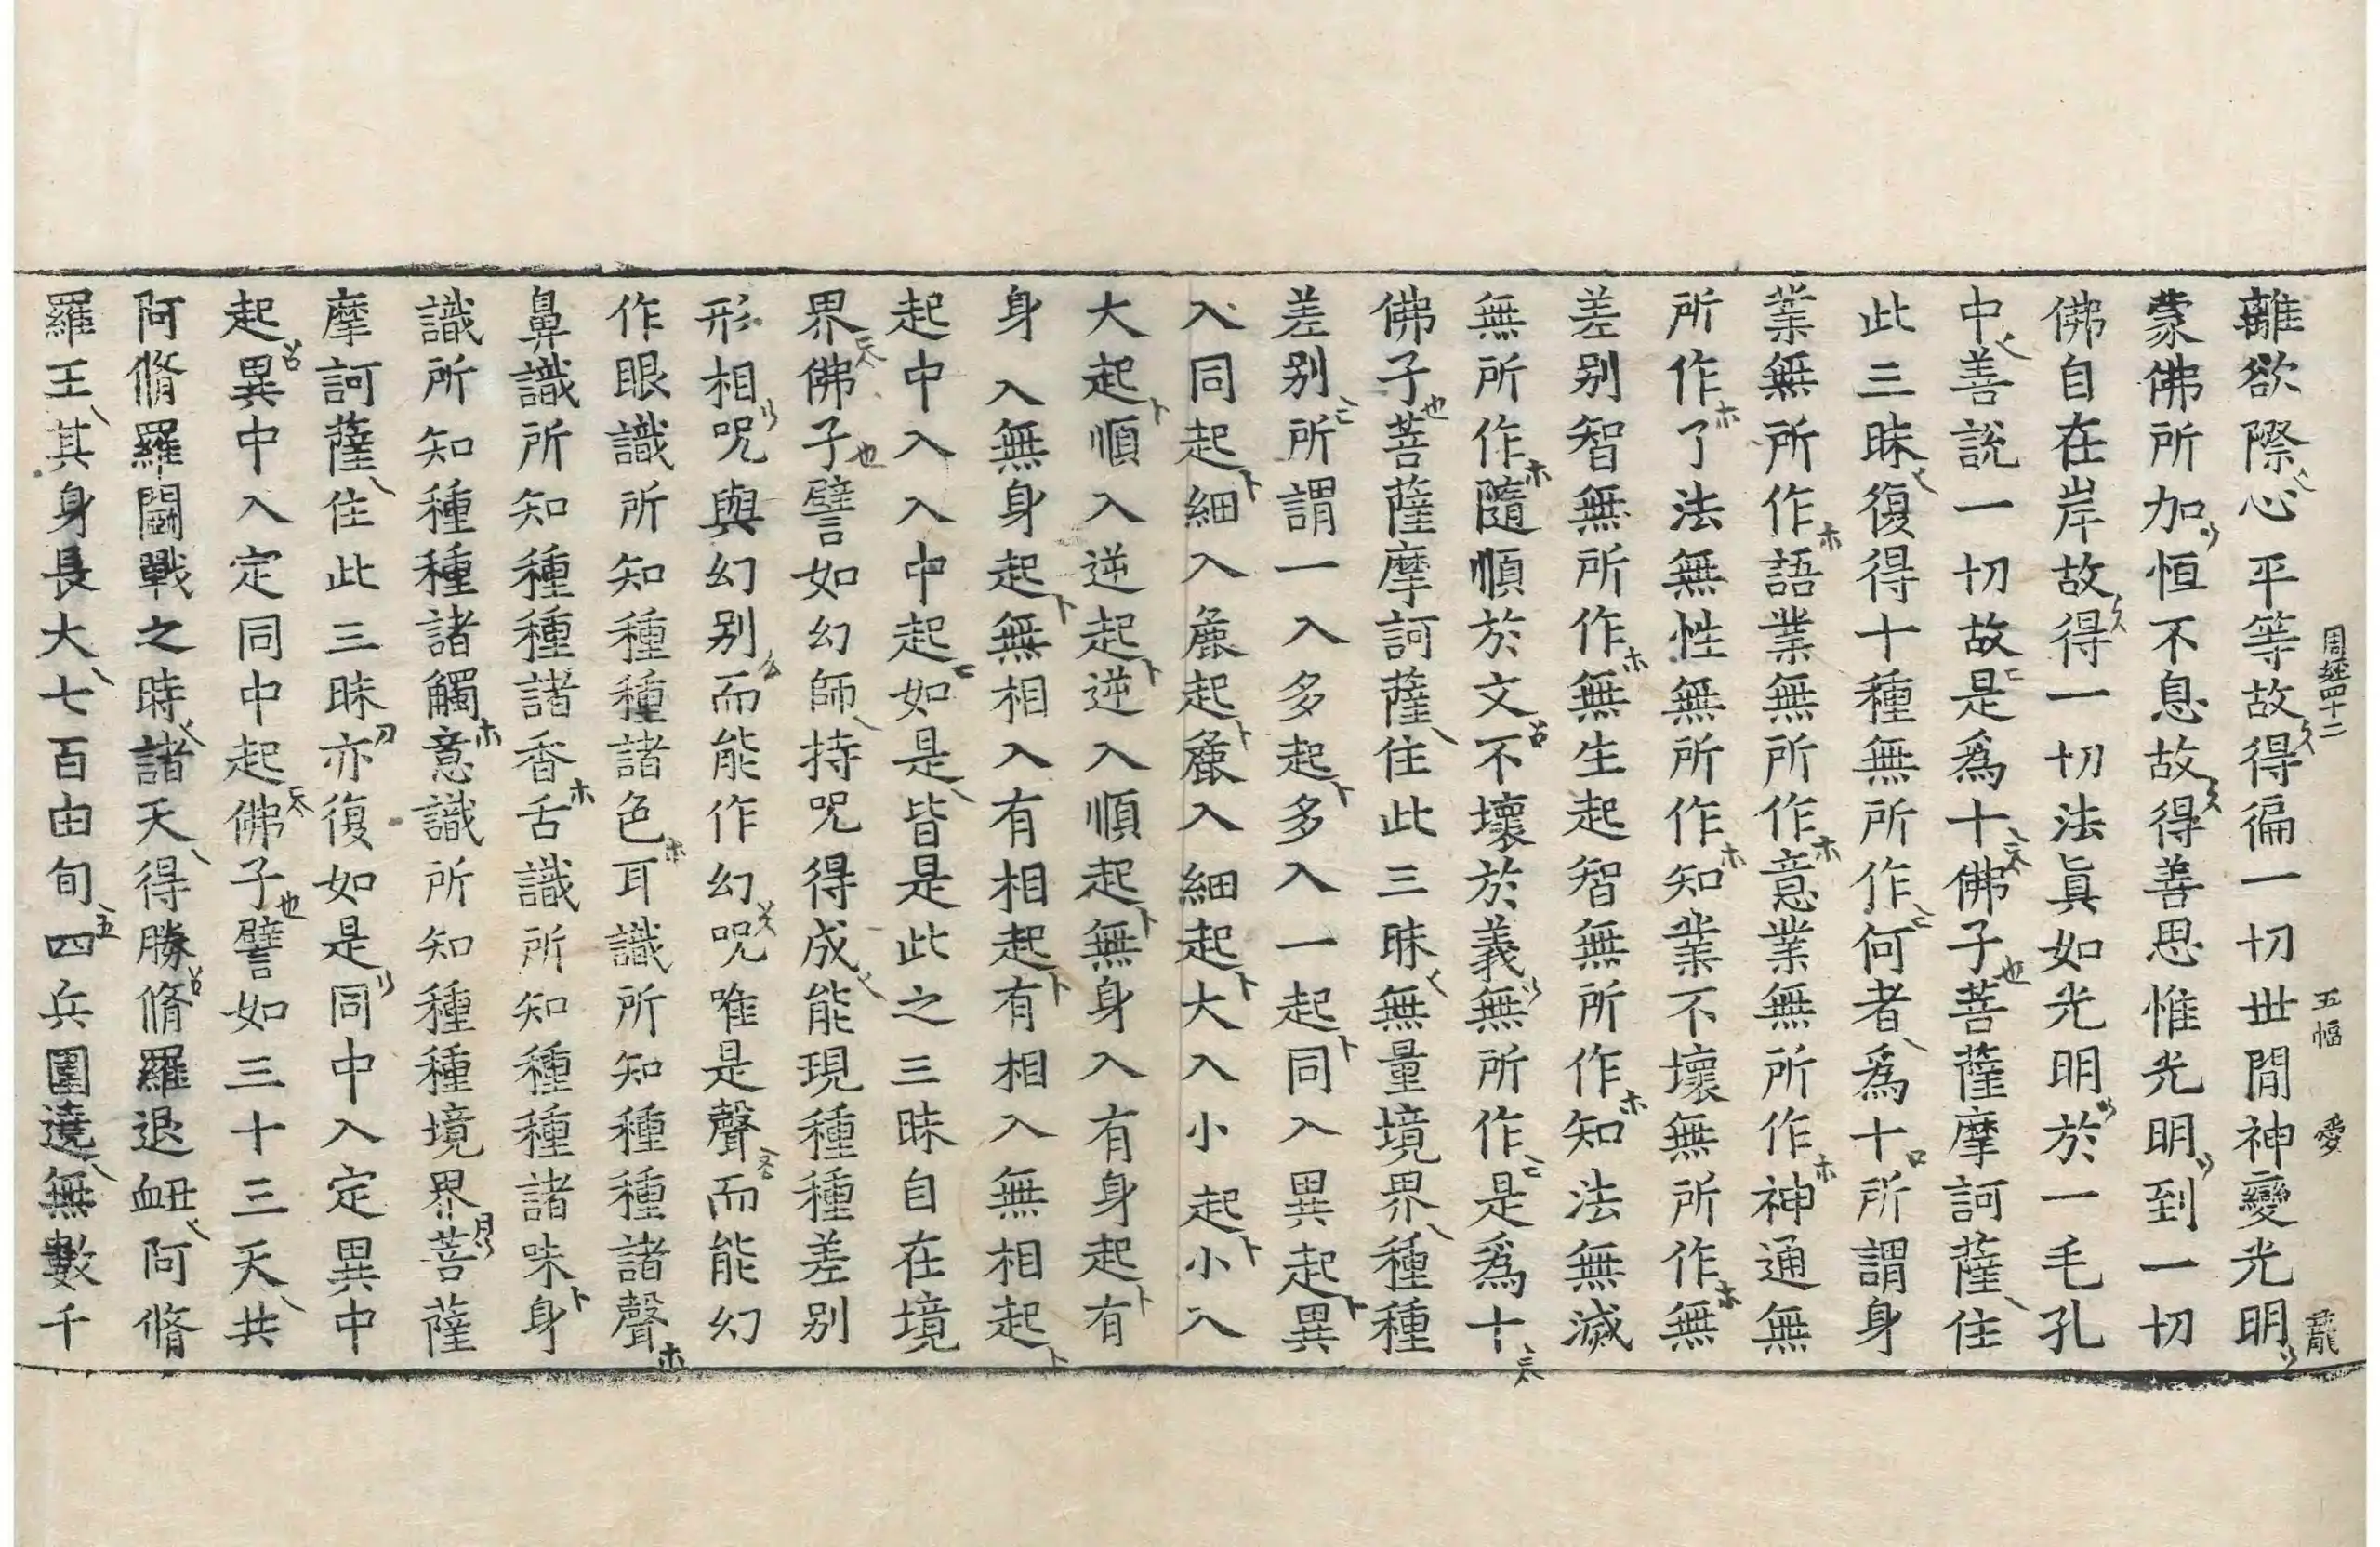 周経四十二 五幅 愛
離欲際心平等故得徧一切世間神變光明
蒙佛所加恒不息故得善思惟光明到一切
佛自在岸故得一切法眞如光明於一毛孔
中善說一切故是爲十佛子菩薩摩訶薩住
此三昧復得十種無所作何者爲十所謂身
業無所作語業無所作意業無所作神通無
所作了法無性無所作知業不壞無所作無
差别智無所作無生起智無所作知法無滅
無所作隨順於文不壞於義無所作是爲十
佛子菩薩摩訶薩住此三昧無量境界種種
差别所謂一入多起多入一起同入異起異
入同起細入麁起麁入細起大入小起小入
大起順入逆起逆入順起無身入有身起有
身入無身起無相入有相起有相入無相起
起中入入中起如是皆是此之三昧自在境
界佛子譬如幻師持呪得成能現種種差别
形相呪與幻别而能作幻呪唯是聲而能幻
作眼識所知種種諸色耳識所知種種諸聲
鼻識所知種種諸香舌識所知種種諸味身
識所知種種諸觸意識所知種種境界菩薩
摩訶薩住此三昧亦復如是同中入定異中
起異中入定同中起佛子譬如三十三天共
阿脩羅鬪戰之時諸天得勝脩羅退衄阿脩
羅王其身長大七百由旬四兵圍遶無數千